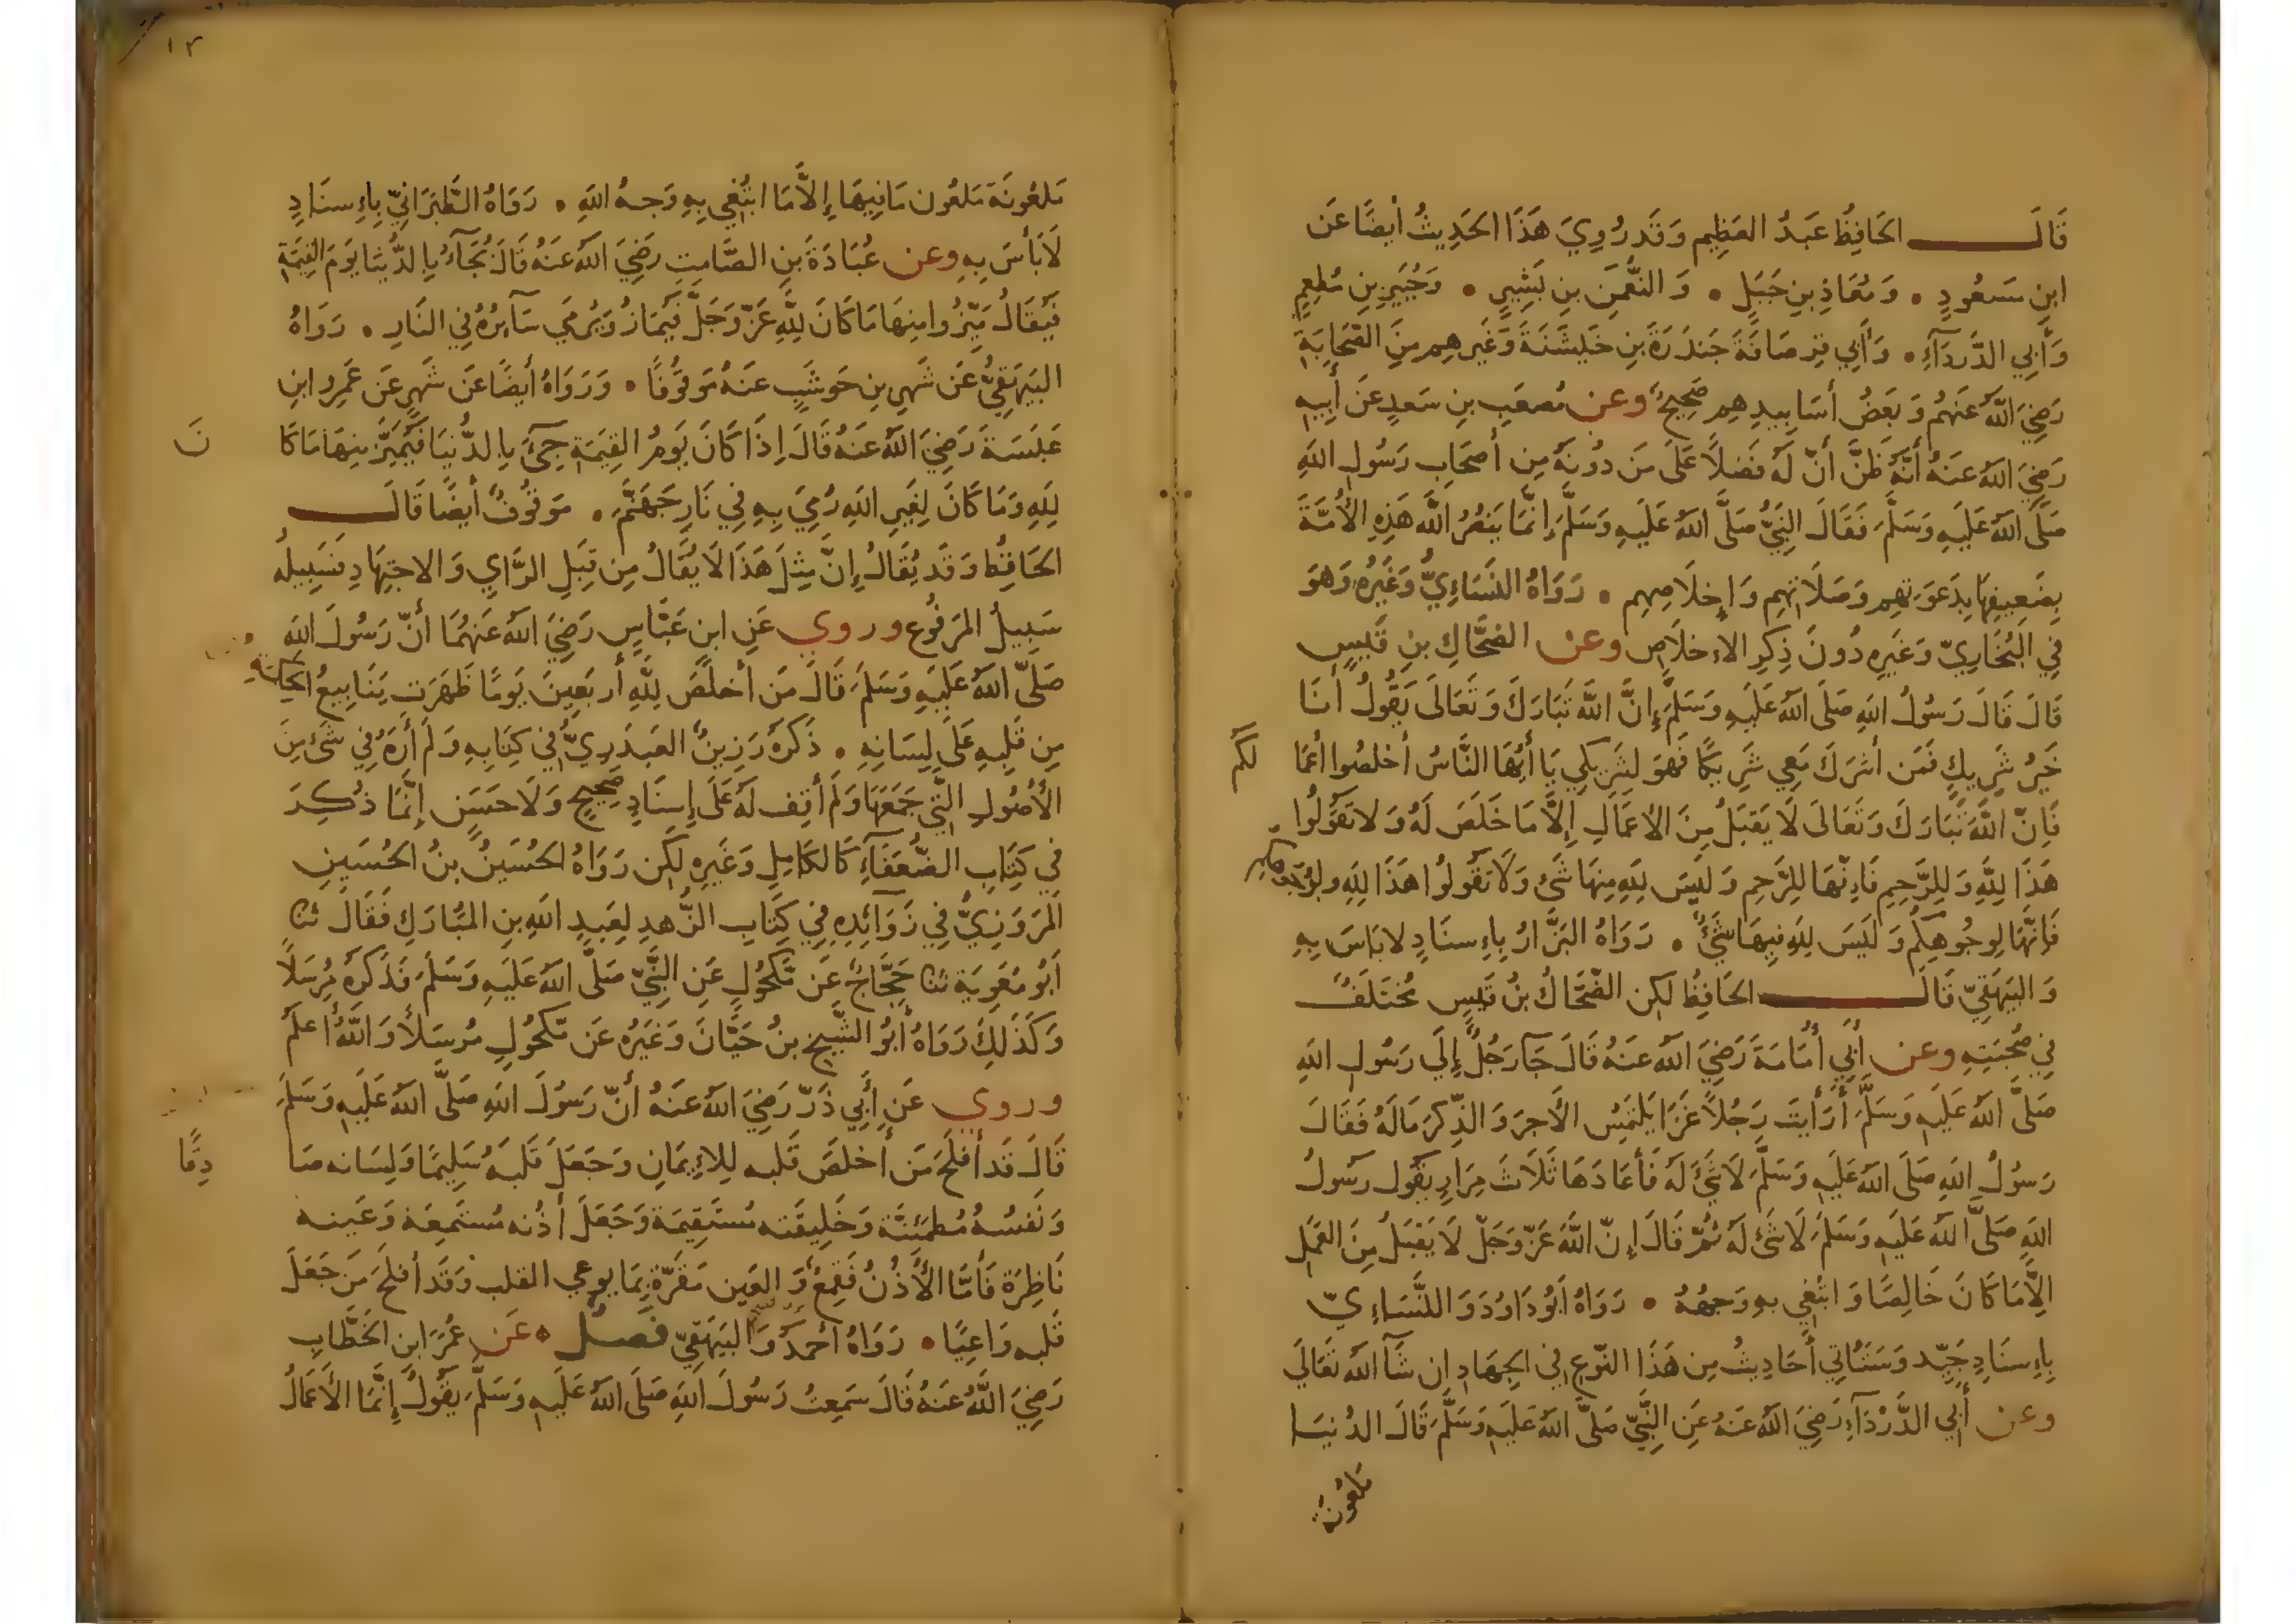 قَالَ الحَافِظُ عَبدُ العَظِيمِ وَقَد رُوِيَ هَذَا الحَدِيثُ أيضًا عَن
ابنِ مَسعُودٍ • وَمُعَاذِ بنِ جَبَلٍ • وَالنُّعمَنِ بنِ بَشِيرٍ • وَجُبَيرِ بنِ مُطعِمٍ
وَأَبِي الدَّردَآءِ • وَأَبِي قِرصَافَةَ جَندَرَةَ بنِ خَيشَنَةَ وَغَيرِهِم مِنَ الصَّحَابَةِ
رَضِيَ اللَّهُ عَنهُم وَبَعضُ أسَانِيدِهِم صَحِيحٌ وعن مُصعَبِ بنِ سَعدٍ عَن أَبِيهِ
رَضِيَ اللَّهُ عَنهُ أَنَّهُ ظَنَّ أَنَّ لَهُ فَضلاً عَلَى مَن دُونَهُ مِن أصحَابِ رَسُولِ اللهِ
صَلَّى اللهُ عَلَيهِ وَسَلَّمَ فَقَالَ النَّبِيُّ صَلَّى اللهُ عَلَيهِ وَسَلَّمَ إِنَّمَا يَنصُرُ اللَّه هَذِهِ الأُمَّةَ
بِضَعِيفِهَا بِدَعوَتِهِم وَصَلَاتِهِم وَإِخلَاصِهِم • رَوَاهُ النَّسَاءِيُّ وَغَيرُهُ وَهوَ
فِي البُخَارِيّ وَغَيرِهِ دُونَ ذِكرِ الاءِخلَاصِ وعن الضَّحَّاكِ بنِ قَيسٍ
قَالَ قَالَ رَسُولُ اللهِ صَلَّى اللهُ عَلَيهِ وَسَلَّمَ إِنَّ اللَّهَ تَبَارَكَ وَتَعَالَى يَقُولُ أَنَا
خَيرُ شَرِيكٍ فَمَن أشرَكَ مَعِي شَرِيكًا فَهوَ لِشَرِيكِي يَا أَيُّهَا النَّاسُ أخلِصُوا أعمَا
لَكُم
فَإِنَّ اللَّهَ تَبَارَكَ وَتَعَالَى لَا يَقبَلُ مِنَ الأعمَالِ إِلَّا مَا خَلَصَ لَهُ وَلَا تَقُولُوا
هَذَا لِلَّهِ وَلِلرَّحِمِ فَإِنَّهَا لِلرَّحِمِ وَلَيسَ لِلَّهِ مِنهَا شَيءٌ وَلَا تَقُولُوا هَذَا لِلَّهِ وَلِوُجُوهِكُم
فَإِنَّهَا لِوُجُوهِكُم وَلَيسَ لِلَّهِ فِيهَا شَيءٌ • رَوَاهُ البَزَّارُ بِإِسنَادٍ لا بَاسَ بِهِ
وَالبَيهَقِيّ قَالَ الحَافِظُ لكِن الضَّحَّاكُ بنُ قَيسٍ مُختَلَفٌ
فِي صُحبَتِهِ وعن أَبِي أُمَامَةَ رَضِيَ اللهُ عَنهُ قَالَ جَآءَ رَجُلٌ إِلَى رَسُولِ اللهِ
صَلَّى اللهُ عَلَيهِ وَسَلَّمَ أَرَأيتَ رَجُلاً غَزَا يَلتَمِسُ الأَجرَ وَالذِّكرَ مَا لَهُ فَقَالَ
رَسُولُ اللهِ صَلَّى اللهُ عَلَيهِ وَسَلَّمَ لَا شَيءَ لَهُ فَأَعَادَهَا ثَلَاثَ مِرَارٍ يَقُول رَسولُ
اللهِ صَلَّى اللهُ عَلَيهِ وَسَلَّمَ لَا شَيءَ لَهُ ثُمَّ قَالَ إِنَّ اللَّهَ عَزَّ وَجَلَّ لَا يَقبَلُ مِنَ العَمَلِ
إِلَّا مَا كَانَ خَالِصًا وَابتُغِي بِهِ وَجهُهُ • رَوَاهُ أَبُو دَاوُدَ وَالنَّسَاءِيّ
بِإِسنَادٍ جَيِّد وَسَتَأتِي أحَادِيثُ مِن هَذَا النَّوعِ فِي الجِهَادِ ان شَآ اللهُ تَعَالَى
وعن أَبِي الدَّردَآءِ رَضِيَ اللهُ عَنهُ عَنِ النَّبِيّ صَلَّى اللهُ عَلَيهِ وَسَلَّمَ قَالَ الدُنيَا
مَلعُونَة
١٣
مَلعُونَة مَلعُون مَا فِيهَا إِلَّا مَا ابتُغِي بِهِ وَجهُ اللهِ • رَوَاهُ الطَّبَرَانِيّ بِإِسنَادٍ
لَا بَأسَ بِهِ وعن عُبَادَةَ بنِ الصَّامِتِ رَضِيَ اللهُ عَنهُ قَالَ يُجَآءُ بِالدُّنيَا يَومَ القِيَمَةِ
فَيُقَالُ مَيِّزُوا مِنهَا مَا كَانَ لِلَّهِ عَزَّ وَجَلَّ فَيُمَازُ وَيُرمَي سَآئِرُهُ فِي النَارِ • رَوَاهُ
البَيهَقِيُّ عَن شَهرِ بنِ حَوشَبٍ عَنهُ مَوقُوفًا • وَرَوَاهُ أيضًا عَن شَهرٍ عَن عَمرِو ابنِ
عَبَسَةَ رَضِيَ اللهُ عَنهُ قَالَ إِذَا كَانَ يَومُ القِيَمَةِ جِيءَ بِالدُّنيَا فَيُمَيَّز مِنهَا مَا كَا
نَ
لِلَّهِ وَمَا كَانَ لِغَيرِ اللهِ رُمِيَ بِهِ فِي نَارِ جَهَنَّمَ • مَوقُوفٌ أيضًا قَالَ
الحَافِظُ وَقَد يُقَالُ إِنَّ مِثلَ هَذَا لَا يُقَالُ مِن قِبَلِ الرَّايِ وَالاجتِهَادِ فَسَبِيلُهُ
سَبِيلُ المَرفُوعِ وروي عَنِ ابنِ عَبَّاسٍ رَضِيَ اللهُ عَنهُمَا أَنَّ رَسُولَ اللهِ
صَلَّى اللهُ عَلَيهِ وَسَلَّمَ قَالَ مَن أخلَصَ لِلَّهِ أربَعِينَ يَومًا ظَهَرَت يَنَابِيعُ الحِكمَةِ
مِن قَلبِهِ عَلَى لِسَانِهِ • ذَكَرَهُ رَزِينُ العَبدَرِيُّ فِي كِتَابِهِ وَلَم أَرَهُ فِي شَيءٍ مِنَ
الأُصُولِ الَّتِي جَمَعَهَا وَلَم أقِف لَهُ عَلَى إِسنَادٍ صَحِيحٍ وَلَا حَسَنٍ إِنَّمَا ذُكِرَ
فِي كِتَابِ الضُّعَفَآءِ كَالكَامِلِ وَغَيرِهِ لكِن رَوَاهُ الحُسَينُ بنُ الحُسَينِ
المَروَزِيُّ فِي زَوَآئِدِهِ فِي كِتَابِ الزُّهدِ لِعَبدِ اللهِ بنِ المُبَارَكِ فَقَالَ ثنا
أَبُو مُعَوِيَة ثنا حَجَّاجٌ عَن مَكحُولٍ عَنِ النَّبِيِّ صَلَّى اللهُ عَلَيهِ وَسَلَّمَ فَذَكَرَهُ مُرسَلاً
وَكَذَلِكَ رَوَاهُ أَبُو الشَّيخِ بنُ حَيَّانَ وَغَيرُهُ عَن مَكحُولٍ مُرسَلاً وَاللَّهُ أعلَم
وروي عَن أَبِي ذَرّ رَضِيَ اللهُ عَنهُ أَنَّ رَسُولَ اللهِ صَلَّى اللهُ عَلَيهِ وَسَلَّمَ
قَالَ قَد أفلَحَ مَن أخلَصَ قَلبه لِلإِيمَانِ وَجَعَلَ قَلبَهُ سَلِيمًا وَلِسَانه صَا
دِقًا
وَنَفسُهُ مُطمَئِنَّة وَخَلِيقَته مُستَقِيمَة وَجَعَلَ أذُنه مُستَمِعَة وَعَينه
نَاظِرَة فَأَمَّا الأُذُنُ فَقِمعٌ وَالعَين مَقَرَّة بِمَا يوعي القلب وَقَد أفلَحَ مَن جَعَلَ
قَلبه وَاعِيًا • رَوَاهُ أحمَدُ وَالبَيهَقِيّ فَصل عَن عُمَرَ ابن الخَطَّابِ
رَضِيَ اللَّهُ عَنهُ قَالَ سَمِعتُ رَسُولَ اللهِ صَلَّى اللهُ عَلَيهِ وَسَلَّمَ يَقُولُ إِنَّمَا الأَعمَالُ